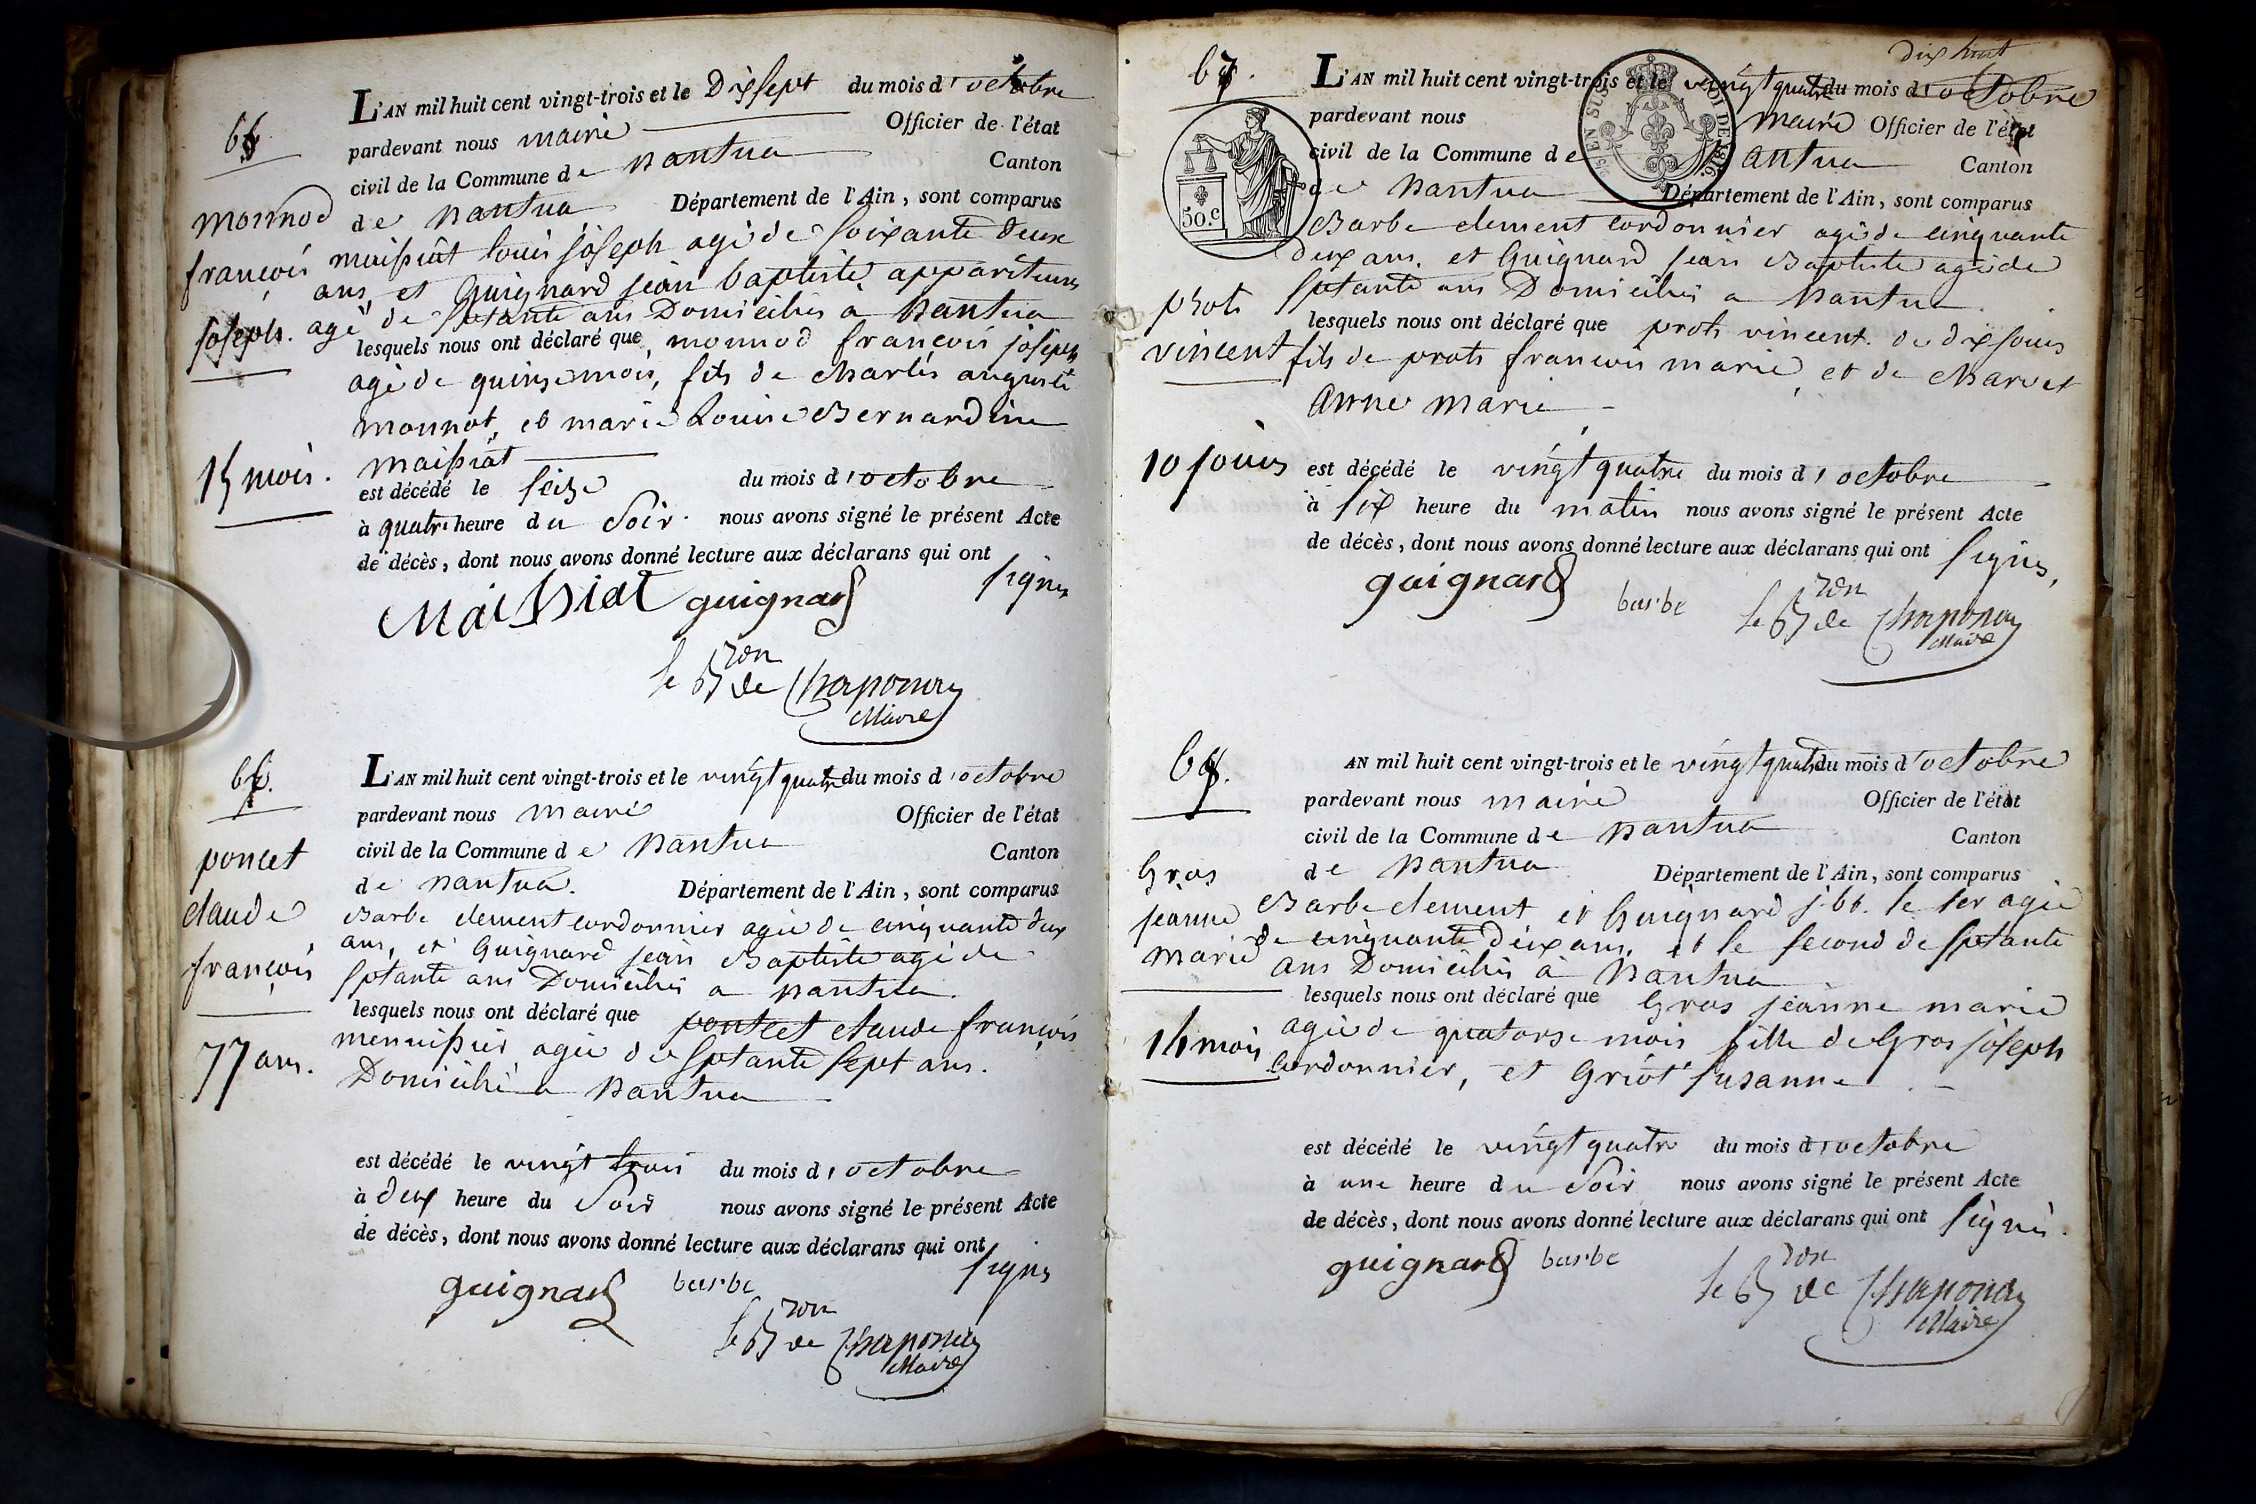 L'AN mil huit cent vingt-trois et le Dix sept du mois d'octobre
pardevant nous maire Officier de l'état
civil de la Commune de nantua Canton
de nantua Département de l'Ain, sont comparus
monnod
françois
joseph.
15 mois.
maissiat louis joseph agé de soixante deux
ans, et Guignard jean baptiste, appariteurs
agé de septante ans Domiciliés a nantua
lesquels nous ont déclaré que monnod françois joseph
agé de quinze mois, fils de charles auguste
monnot, et marie Louise Bernardine
maissiat
est décédé le seize du mois d'octobre
à quatre heure du soir nous avons signé le présent Acte
de décès, dont nous avons donné lecture aux déclarans qui ont
signés
Maissiat guignard
le Bon de Chaponay
Maire
L'AN mil huit cent vingt-trois et le vingt quatre du mois d'octobre
pardevant nous maire Officier de l'état
civil de la Commune de nantua Canton
de nantua. Département de l'Ain, sont comparus
poncet
claude
françois
77 ans.
Barbe clement cordonnier agé de cinquante deux
ans, et Guignard jean Baptiste agé de
septante ans Domiciliés a nantua.
lesquels nous ont déclaré que poncet claude françois
menuisier agé de septante sept ans.
Domicilié a nantua
est décédé le vingt trois du mois d'octobre
à deux heure du soir nous avons signé le présent Acte
de décès, dont nous avons donné lecture aux déclarans qui ont
signés
guignard barbe
le Bon de Chaponay
Maire
67.
Dix huit
L'AN mil huit cent vingt-trois et le vingt quatre du mois d'octobre
pardevant nous maire Officier de l'état
civil de la Commune de nantua Canton
de nantua Département de l'Ain, sont comparus
50.c
prots
vincent
10 jours
Barbe clement cordonnier agé de cinquante
deux ans. et Guignard jean Baptiste agé de
septante ans Domiciliés a nantua.
lesquels nous ont déclaré que prots vincent. de dix jours
fils de prots francois marie, et de charvet
anne marie
est décédé le vingt quatre du mois d'octobre
à six heure du matin nous avons signé le présent Acte
de décès, dont nous avons donné lecture aux déclarans qui ont signés,
guignard barbe
le Bon de Chaponay
Maire
AN mil huit cent vingt-trois et le vingt quatre du mois d'octobre
pardevant nous maire Officier de l'état
civil de la Commune de nantua Canton
de nantua Département de l'Ain, sont comparus
Gros
jeanne
marie
14 mois
Barbe clement et Guignard j. bt. le 1er agé
de cinquante deux ans, et le second de septante
ans Domiciliés à nantua
lesquels nous ont déclaré que Gros jeanne marie
agée de quatorse mois fille de Gros joseph
cordonnier, et Griot susanne
est décédé le vingt quatre du mois d'octobre
à une heure du soir nous avons signé le présent Acte
de décès, dont nous avons donné lecture aux déclarans qui ont signés.
guignard barbe
le Bon de Chaponay
Maire